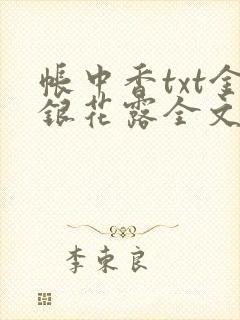 帐中香txt金
银花露全文
李东良